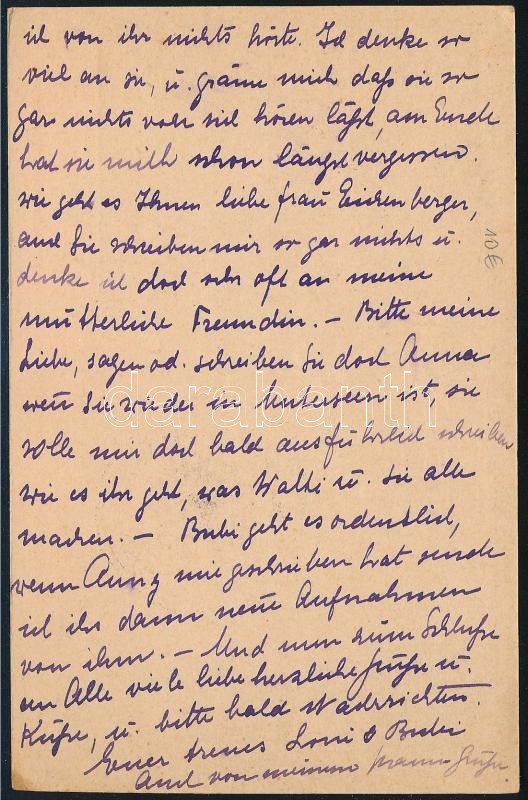 ich von ihr nichts hörte. Ich denke so
viel an sie, u. gräme mich daß sie so
gar nichts von sich hören läßt, am Ende
hat sie mich schon längst vergessen.
wie geht es Ihnen liebe frau Eichenberger,
auch Sie schreiben mir so gar nichts u.
denke ich doch sehr oft an meine
mütterliche Freundin. — Bitte meine
Liebe, sagen od. schreiben Sie doch Anna
wen̄ Sie wieder in Unterseen ist, sie
solle mir doch bald ausführlich schreiben
wie es ihr geht, was Walti u. Sie alle
machen. — Bubi geht es ordentlich,
wenn Anny mir geschrieben hat sende
ich ihr dann neue Aufnahmen
von ihm. — Und nun zum Schluße
an Alle viele liebe herzliche Grüße u.
Küße, u. bitte bald
Euer treues Loni & Bubi
Auch von meinem Mann Grüße.
10€
darabanth